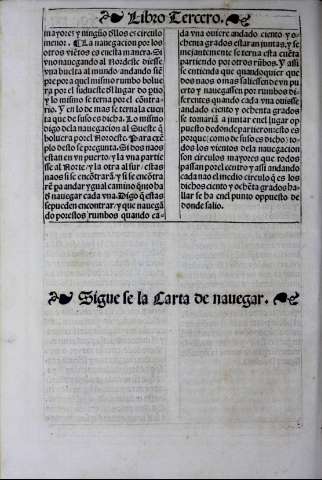 Libro Tercero.
mayores y ningũo dellos es circulo
menor. La nauegacion por los
otros viẽtos es en esta manera. Si
vno nauegando al Nordeste diesse
vna buelta al mundo andando siẽ
pre por a quel mismo rumbo bolue
ra por el sudueste al lugar do puo
y lo mismo se terna por el cõtra-
rio. Y en lo de mas se terna la cuen
ta que de suso es dicha. Lo mismo
digo dela nauegacion al Sueste q̃
boluera por el Noroeste. Para exẽ
plo desto se pregunta. Si dos naos
estan en vn puerto y la vna partie
sse al Norte / y la otra al sur. estas
naos si se encõtrarã y si se encõtra
rẽ po andar y gual camino q̃nto ba
d̃ nauegar cada vna. Digo q̃ estas
se pueden encontrar. y que nauegã
do por estos rumbos quando ca-
da vna ouiere andado ciento y o-
chenta grados estaran juntas. y se
mejantemente se terna esta cuẽta
partiendo por otros rũbos. Y assi
se entienda que quando quier que
dos naos o mas saliessen de vn pu
erto y nauegassen por rumbos di-
ferentes quando cada vna ouiesse
andado ciento y ochenta grados
se tomariã a juntar en el lugar op
puesto de donde partieron: esto es
porque: como de suso es dicho: to-
dos los vientos dela nauegacion
son circulos mayores que todos
passan por el centro y assi andando
cada nao el medio circulo q̃ es los
dichos ciento y ochẽta grados ha-
llar se ha en el punto oppuesto de
donde salio.
Sigue se la Carta de nauegar.